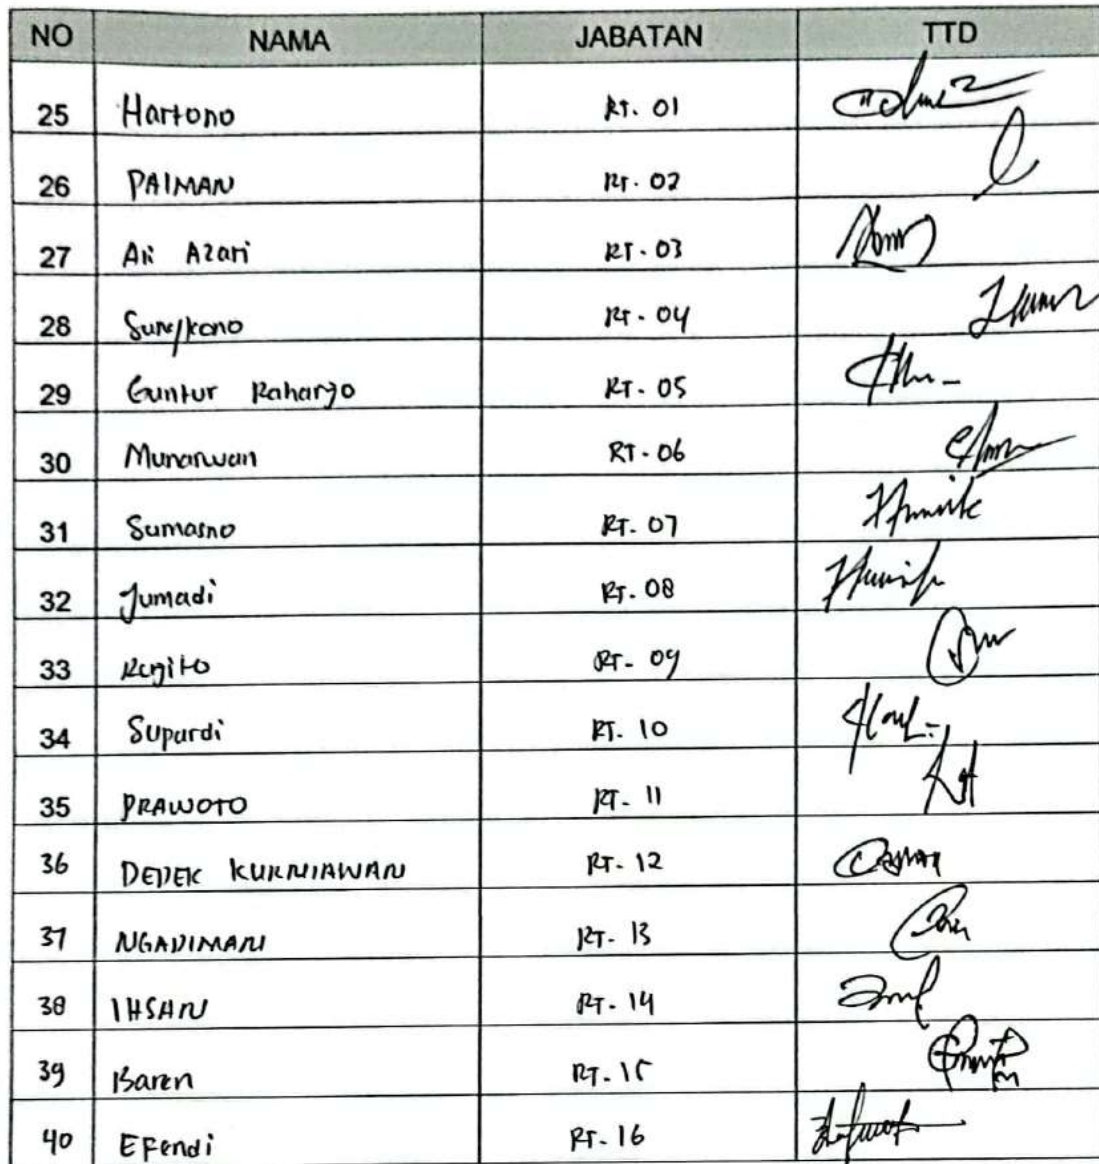 NO NAMA JABATAN TTD
25 Hartono RT. 01
26 PAIMAN RT. 02
27 Ari Azari RT. 03
28 Sungkono RT. 04
29 Guntur Raharjo RT. 05
30 Munarwan RT. 06
31 Sumasno RT. 07
32 Jumadi RT. 08
33 RT. 09
34 Supardi RT. 10
35 PRAWOTO RT. 11
36 DEDEK KURNIAWAN RT. 12
37 NGADIMAN RT. 13
38 IHSAN RT. 14
39 Baren RT. 15
40 Efendi RT. 16